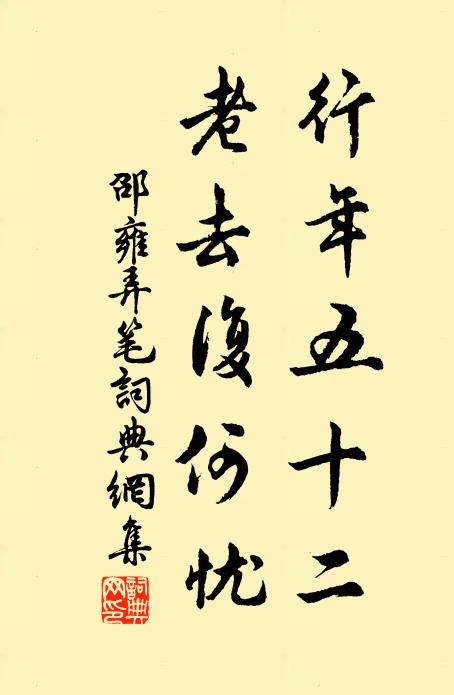 行年五十二
老去復何忧
邵雍弄笔詞典網集
詞典网印